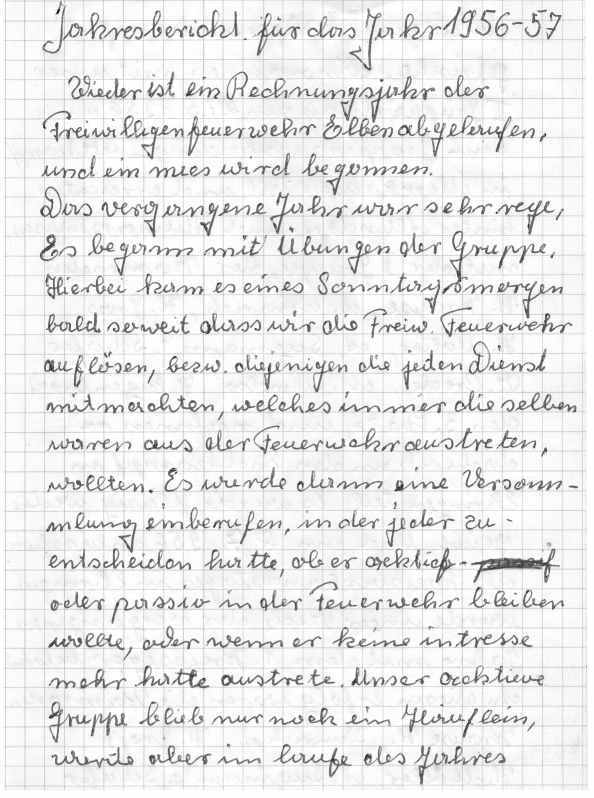 Jahresbericht für das Jahr 1956-57
Wieder ist ein Rechnungsjahr der
Freiwilligenfeuerwehr Elben abgelaufen,
und ein nues wird begonnen.
Das vergangene Jahr war sehr rege,
Es begann mit Übungen der Gruppe.
Hierbei kam es eines Sonntagsmorgen
bald soweit dass wir die Freiw. Feuerwehr
auflösen, bezw. diejenigen die jeden Dienst
mitmachten, welches immer die selben
waren aus der Feuerwehr austreten,
wollten. Es wurde dann eine Versamm-
mlung einberufen, in der jeder zu-
entscheiden hatte, ob er acktief-
oder passiv in der Feuerwehr bleiben
wollte, oder wenn er keine intresse
mehr hatte austrete. Unser acktieve
Gruppe blieb nur noch ein Häuflein,
wurde aber im laufe des Jahres